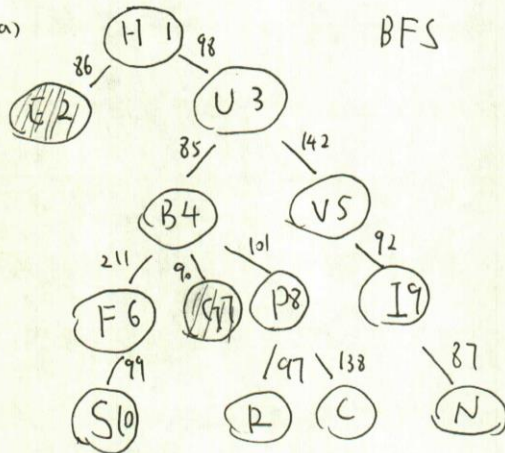 a) H 1 BFS
86 98
E 2 U 3
85 142
B4 V5
211 90 101 92
F 6 G7 P8 I9
99 97 138 87
S10 R C N